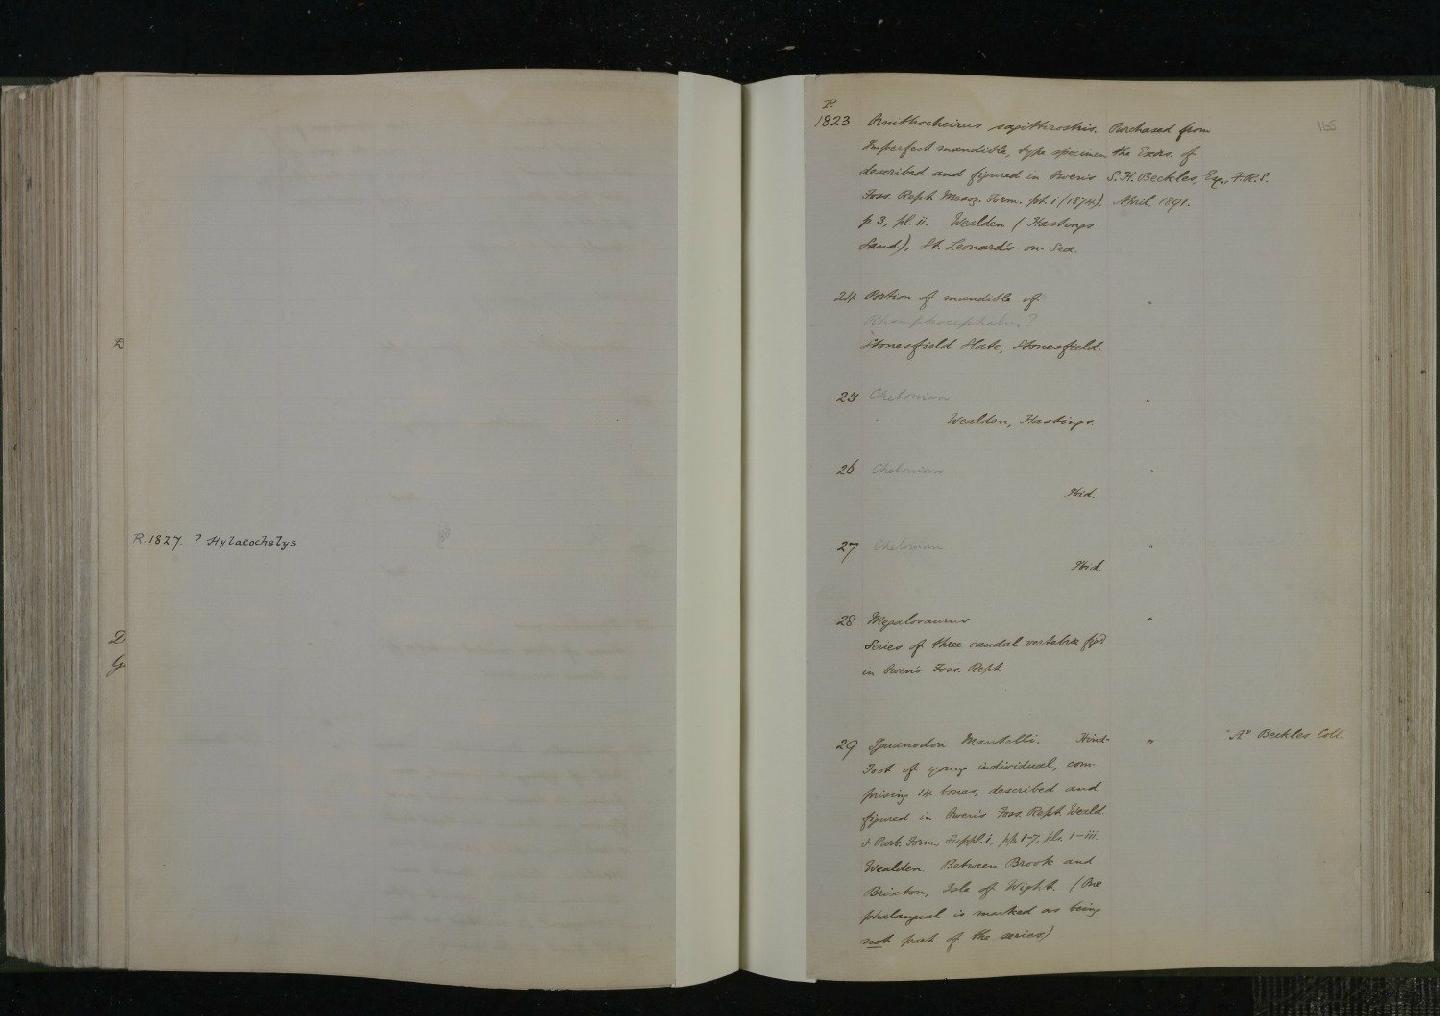 R.1827 ? Hylaeochelys
D
G
165
R.
1823 Ornithocheirus sagittirostris. Purchased from
Imperfect mandible, type specimen, the Exors. of
described and figured in Owen's S. H. Beckles, Esq., F.R.S.
Foss. Rept. Mesoz. Form. pt. i (1874). April 1891.
p 3, pl ii. Wealden (Hastings
Sand), St. Leonards-on-Sea.
24 Portion of mandible of "
Rhamphocephalus ?
Stonesfield Slate, Stonesfield.
25 Chelonian "
Wealden, Hastings.
26 Chelonian "
Ibid.
27 Chelonian "
Ibid
28 Megalosaurus "
Series of three caudal vertebræ figd
in Owen's Foss. Rept.
29 Iguanodon Mantelli. Hind- " "A" Beckles Coll.
Foot of young individual, com-
prising 14 bones, described and
figured in Owen's Foss. Rept. Weald.
& Purb. Form., Suppl. i, pp 1-7, pls. i-iii.
Wealden. Between Brook and
Brixton, Isle of Wight. (One
phalangeal is marked as being
not part of the series)